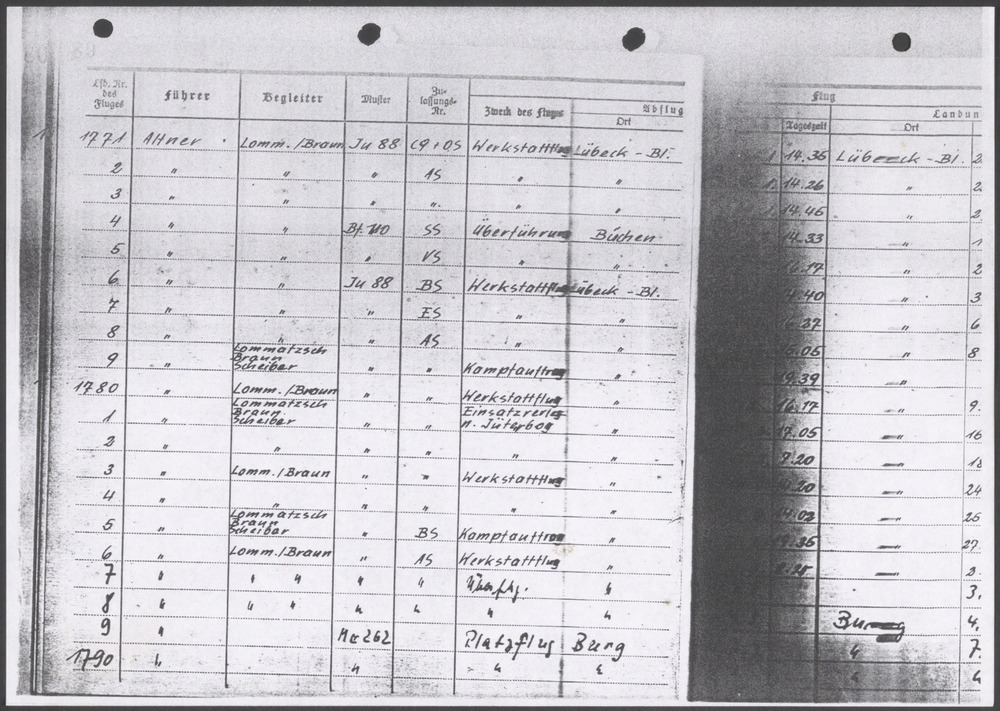 Lfd. Nr. des Fluges Führer Begleiter Muster Zu-lassungs-Nr. Zweck des Fluges Abflug Ort Flug Tageszeit Landun Ort
1771 Altner Lomm./Braun Ju 88 C9+DS Werkstattflug Lübeck-Bl. 14.35 Lübeck-Bl. 2.
2 " " " AS " " 14.26 " 2.
3 " " " " " " 14.45 " 2.
4 " " Bf 110 SS Überführung Büchen 14.33 " 1
5 " " " VS " " 17 " 2
6 " " Ju 88 BS Werkstattflug Lübeck-Bl. 40 " 3
7 " " " ES " " 37 " 6
8 " " " AS " " 05 " 8
9 " Lommatzsch Braun Scheiber " " Kampfauftrag " 39 "
1780 " Lomm./Braun " " Werkstattflug " 17 " 9.
1 " Lommatzsch Braun Scheiber " " Einsatzverleg n. Jüterbog " 17.05 " 16
2 " " " " " " 7.20 " 18
3 " Lomm./Braun " " Werkstattflug " 20 " 24
4 " " " " " " 14.02 " 25
5 " Lommatzsch Braun Scheiber " BS Kampfauftrag " 35 " 27.
6 " Lomm./Braun " AS Werkstattflug " " 2.
7 " " " " " Überfhg. " 3.
8 " " " " " " " Burg 4.
9 " Me 262 Platzflug Burg " 7.
1790 " " " " "